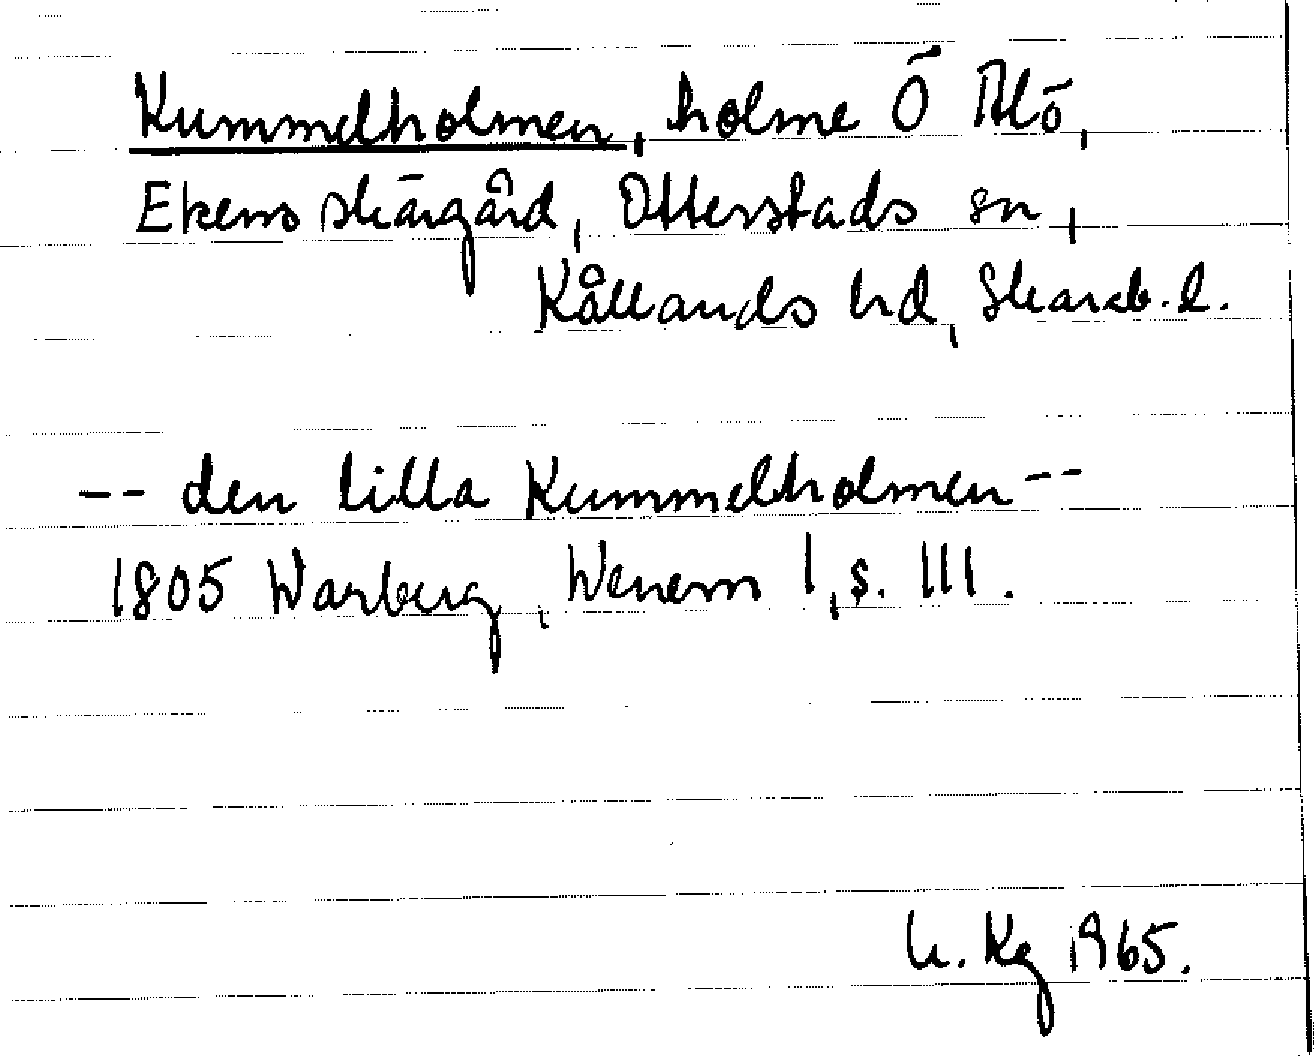 Kummelholmen, holme Ö Blö,
Ekens skärgård, Otterstads sn,
Kållands hd, Skarab. l.
-- den lilla Kummelholmen --
1805 Warberg, Wenern I, s. 111.
U. Kg 1965.